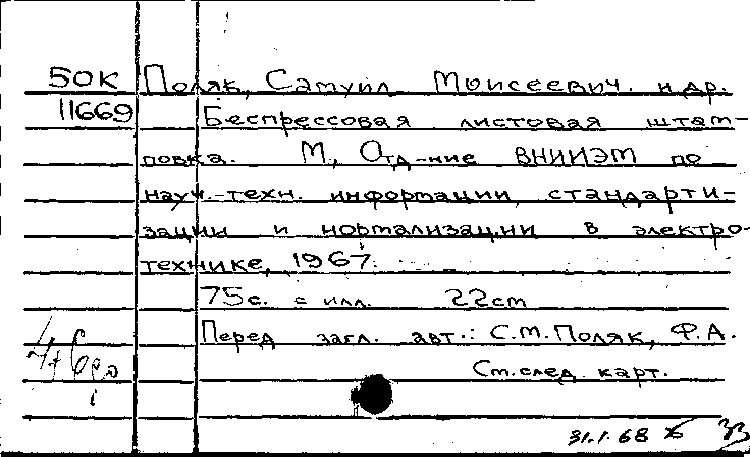 50К Поляк, Самуил Моисеевич. и др.
11669 Беспрессовая листовая штам-
повка. М, Отд-ние ВНИИЭМ по
науч.-техн. информации, стандарти-
зации и нормализации в электро-
технике, 1967.
75с. с илл. 22cm
Перед загл. авт.: С.М.Поляк, Ф.А.
См.след. карт.
31.1.68